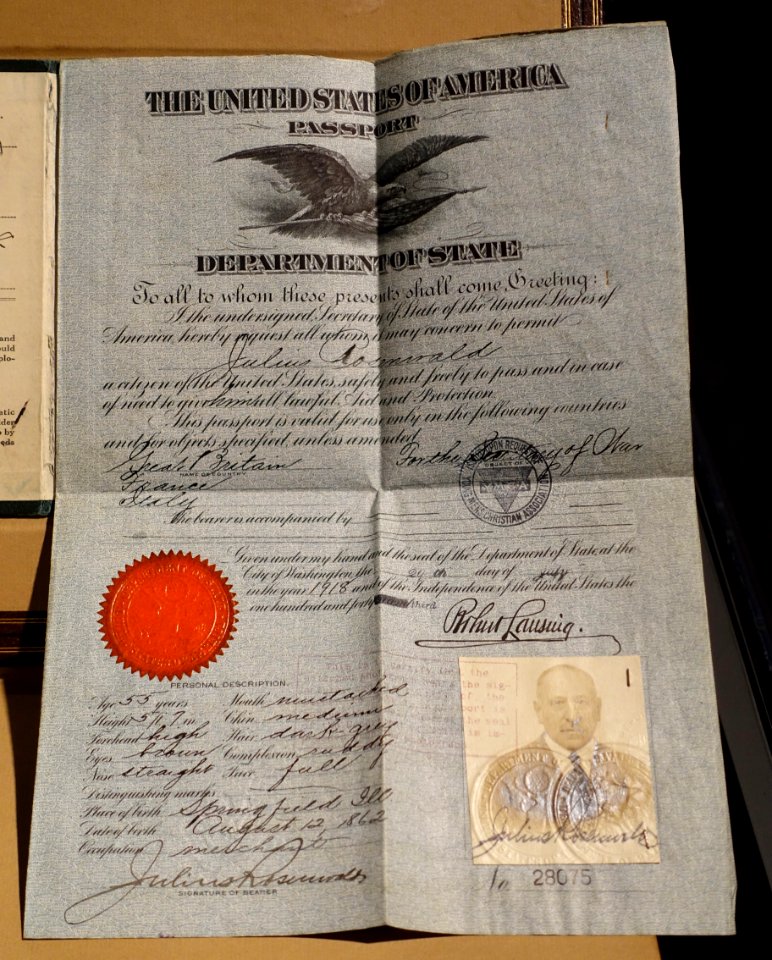 THE UNITED STATES OF AMERICA
PASSPORT
DEPARTMENT OF STATE
To all to whom these presents shall come, Greeting:
I the undersigned, Secretary of State of the United States of
America, hereby request all whom it may concern to permit
Julius Rosenwald
a citizen of the United States, safely and freely to pass and in case
of need to give him all lawful Aid and Protection.
This passport is valid for use only in the following countries
and for objects specified, unless amended
Great Britain
NAME OF COUNTRY
For the of War
France
Italy
UPON REQUEST
CHRISTIAN ASSOCIATION
The bearer is accompanied by
Given under my hand and the seal of the Department of State, at the
City of Washington, the day of
in the year 1918 and of the Independence of the United States the
one hundred and forty third
Robert Lansing.
PERSONAL DESCRIPTION.
Age 55 years Mouth mustached
Height 5 ft 7 in Chin medium
Forehead high Hair dark grey
Eyes brown Complexion ruddy
Nose straight Face full
Distinguishing marks
Place of birth Springfield Ill
Date of birth August 12, 1862
Occupation merchant
Julius Rosenwald
SIGNATURE OF BEARER
the
the sig-
of the
port is
the seal
is
1
Julius Rosenwald
No 28075
and
ould
plo-
atic
lder
o by
eeds